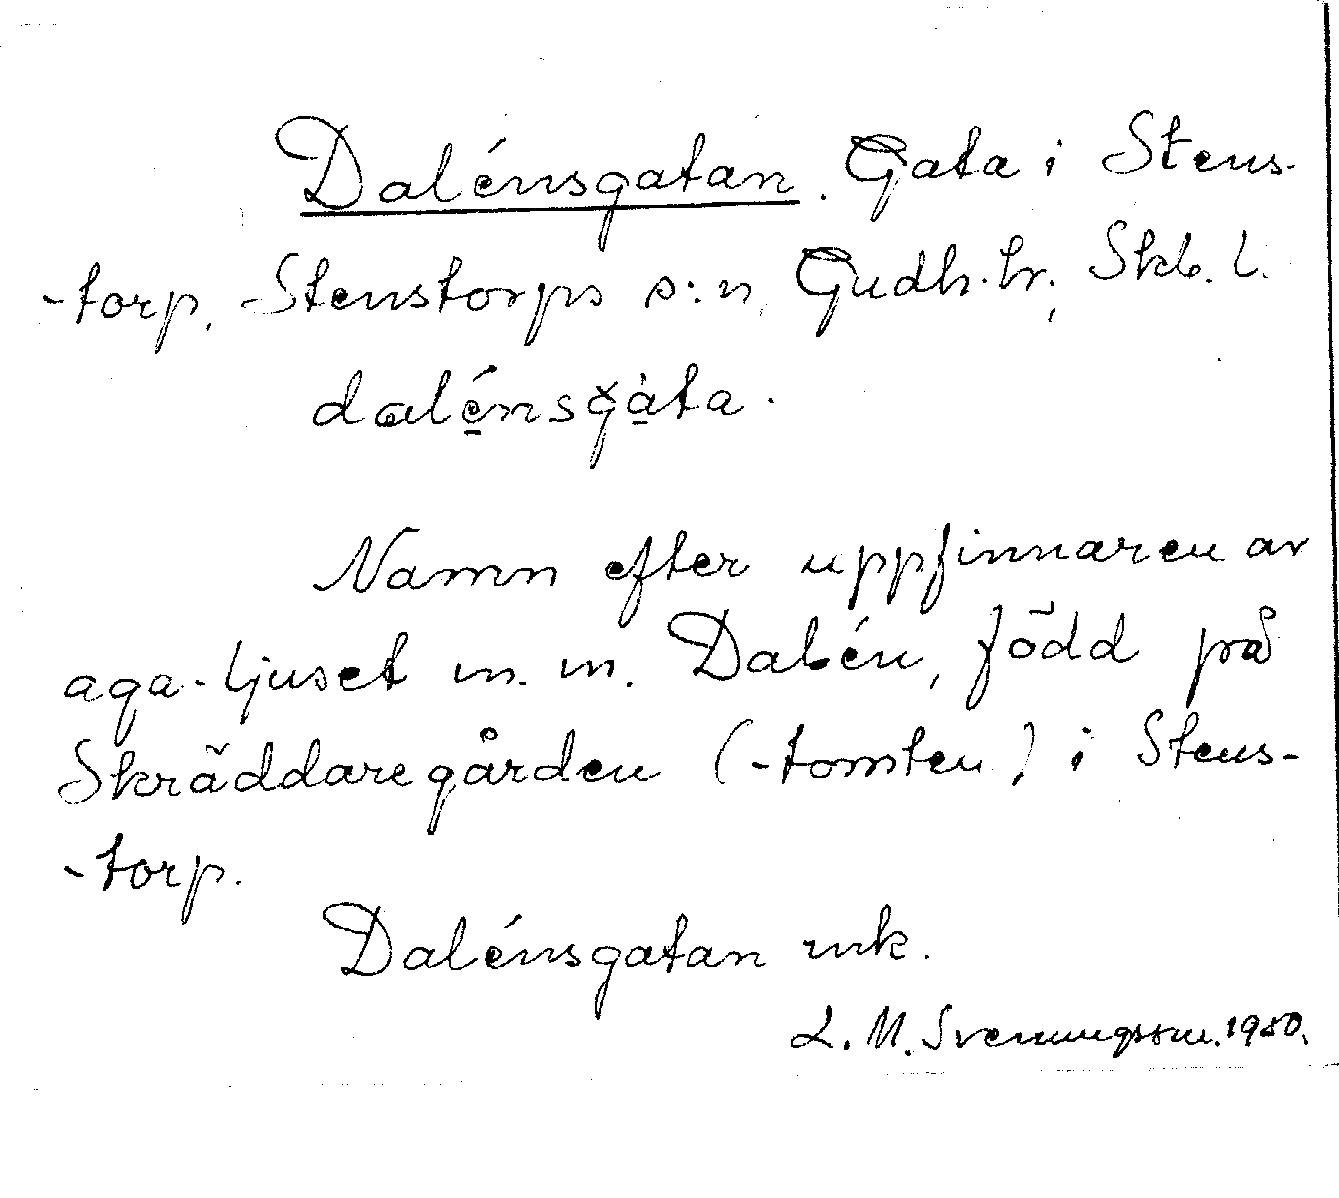 Dalénsgatan. Gata i Stens-
-torp, Stenstorps s:n, Gudh. hr; Skb. l.
dalénsgàta.
Namn efter uppfinnaren av
aga-ljuset m. m. Dalén, född på
Skräddaregården (-tomten) i Stens-
-torp.
Dalénsgatan mk.
L. M. Svenungsson. 1950.